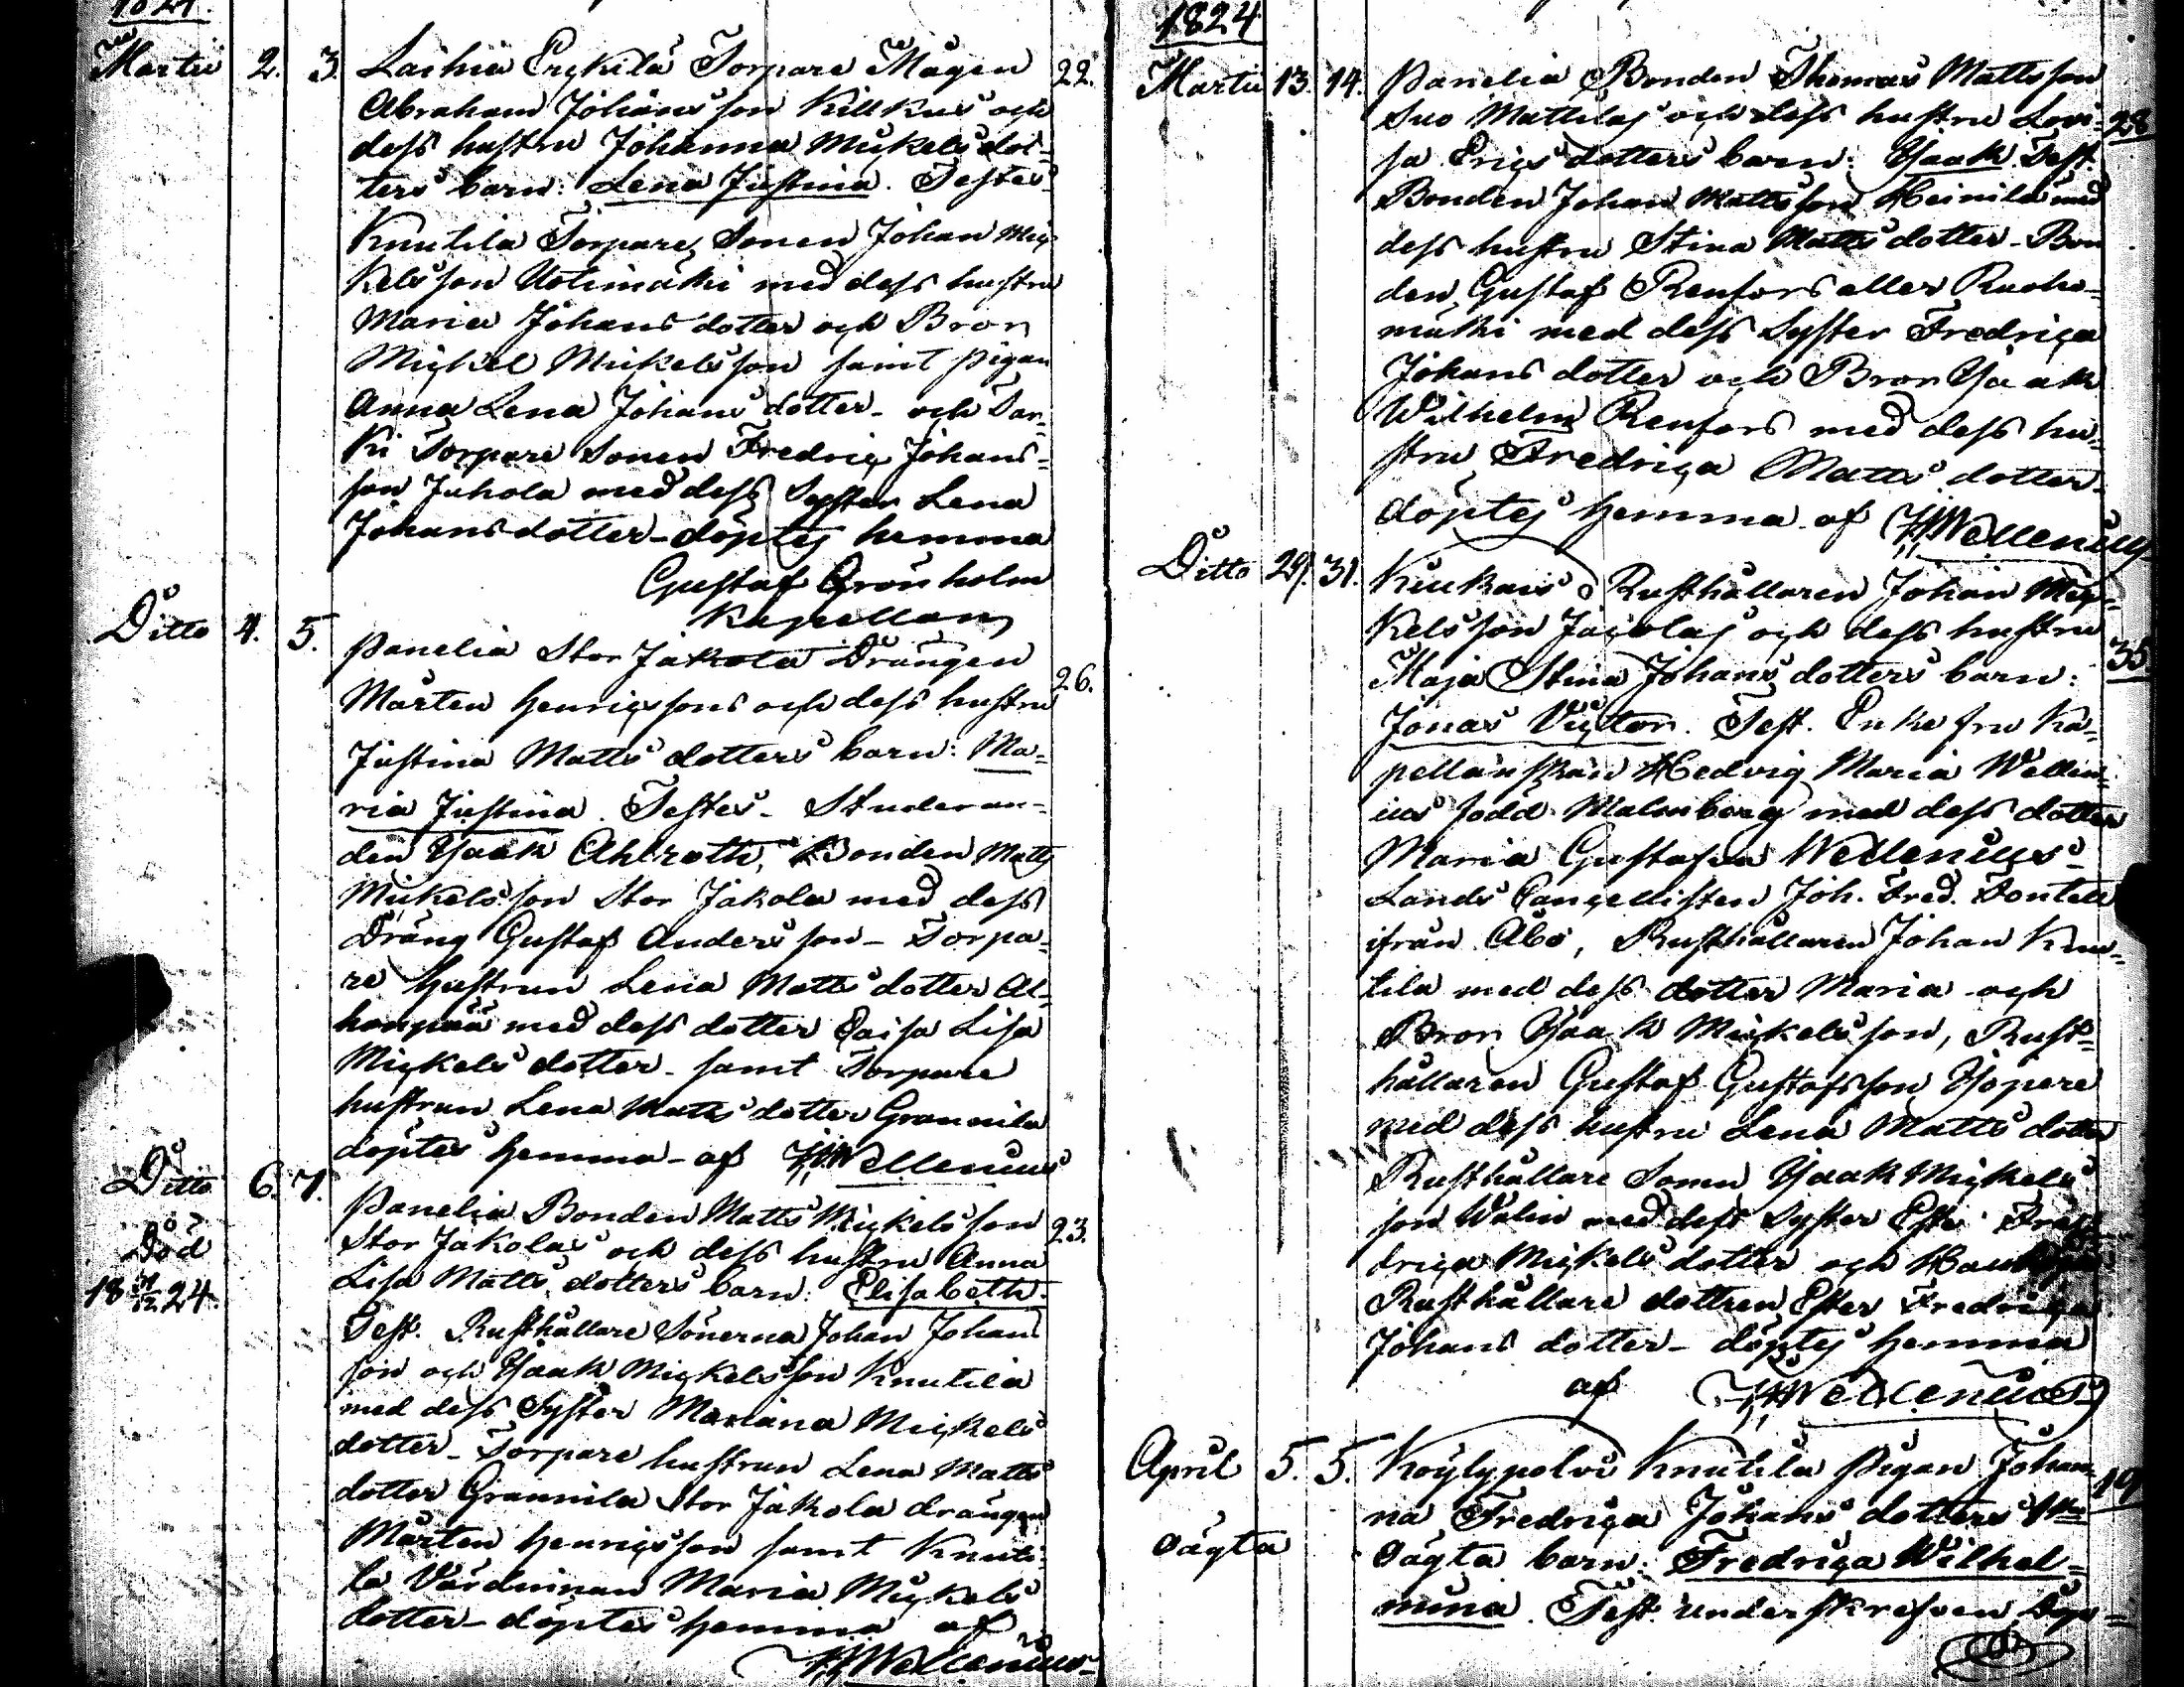 1824.
Martii 2. 3. Laihia Erckilä Torpare Mågen 22.
Abraham Johansson Killkus och
dess hustru Johanna Mickelsdot-
ters barn: Lena Justina. Testes
Knutila Torpare Sonen Johan Mic-
kelsson Uotimäki med dess hustru
Maria Johans dotter och Bror
Mickel Mickelsson samt pigan
Anna Lena Johans dotter - och Sor-
ki Torpare Sonen Fredric Johans-
son Juhola med dess Syster Lena
Johansdotter - döptes hemma
Gustaf Grönholm
Kapellan
Ditto 4. 5. Panelia Stor Jakola Drängen
Mårten Henricssons och dess hustru 26.
Justina Matts dotters barn: Ma-
ria Justina. Testes - Studeran-
den Isaak Ahlroth, Bonden Matts
Mickelsson Stor Jakola med dess
Dräng Gustaf Andersson - Torpa-
re hustrun Lena Matts dotter Al-
honpää med dess dotter Caisa Lisa
Mickels dotter - samt Torpare
hustrun Lena Matts dotter Grannila
döptes hemma - af Wellenius
Ditto 6. 7. Panelia Bonden Matts Mickelsson
Stor Jakolas och dess hustru Anna 23.
Död
Lisa Matts dotters barn: Elisabeth.
18 24.
Test. Rusthållare Sönerna Johan Johans
son och Isaak Mickelsson Knutila
med dess Syster Mariana Mickels
dotter - Torpare hustrun Lena Matts
dotter Grannila Stor Jakola drängen
Mårten Henricsson samt Knuti-
la Värdinnan Maria Mickels
dotter - döptes hemma af
Wellenius
1824
Martii 13. 14. Panelia Bonden Thomas Mattsson
Suo Mattilas och dess hustru Lovi- 28
sa Erics dotters barn: Isaak Test.
Bonden Johan Mattsson Heinilä med
dess hustru Stina Matts dotter - Bon
den Gustaf Renfors eller Ruoho-
mäki med dess Syster Fredrica
Johans dotter och Bror Isaak
Wilhelm Renfors med dess hu-
stru Fredrica Matts dotter -
döptes hemma af Wellenius
Ditto 29. 31. Kiukais Rusthållaren Johan Mic-
kelsson Jacolas och dess hustru
Maja Stina Johans dotters barn: 35
Jonas Victor. Test. Enke fru Ka-
pellanskan Hedvig Maria Wellen-
ius född Malmberg med dess dotter
Maria Gustafva Wellenius -
Lands Cancellisten Joh. Fred. Fontell
ifrån Åbo, Rusthållaren Johan Knu-
tila med dess dotter Maria och
Bror Isaak Mickelsson, Rust-
hållaren Gustaf Gustafsson Isopere
med dess hustru Lena Matts dotter
Rusthållare Sonen Isaak Mickels
son Walin med dess Syster Ester Fre
drica Mickels dotter och
Rusthållare dottren Ester Fredrica
Johans dotter - döptes hemma
af Wellenius
April 5. 5. Köylypolvi Knutila pigan Johan-
na Fredrica Johans dotters 1sta 19
oägta
oägta barn: Fredrica Wilhel-
mina. Test. underskrefven